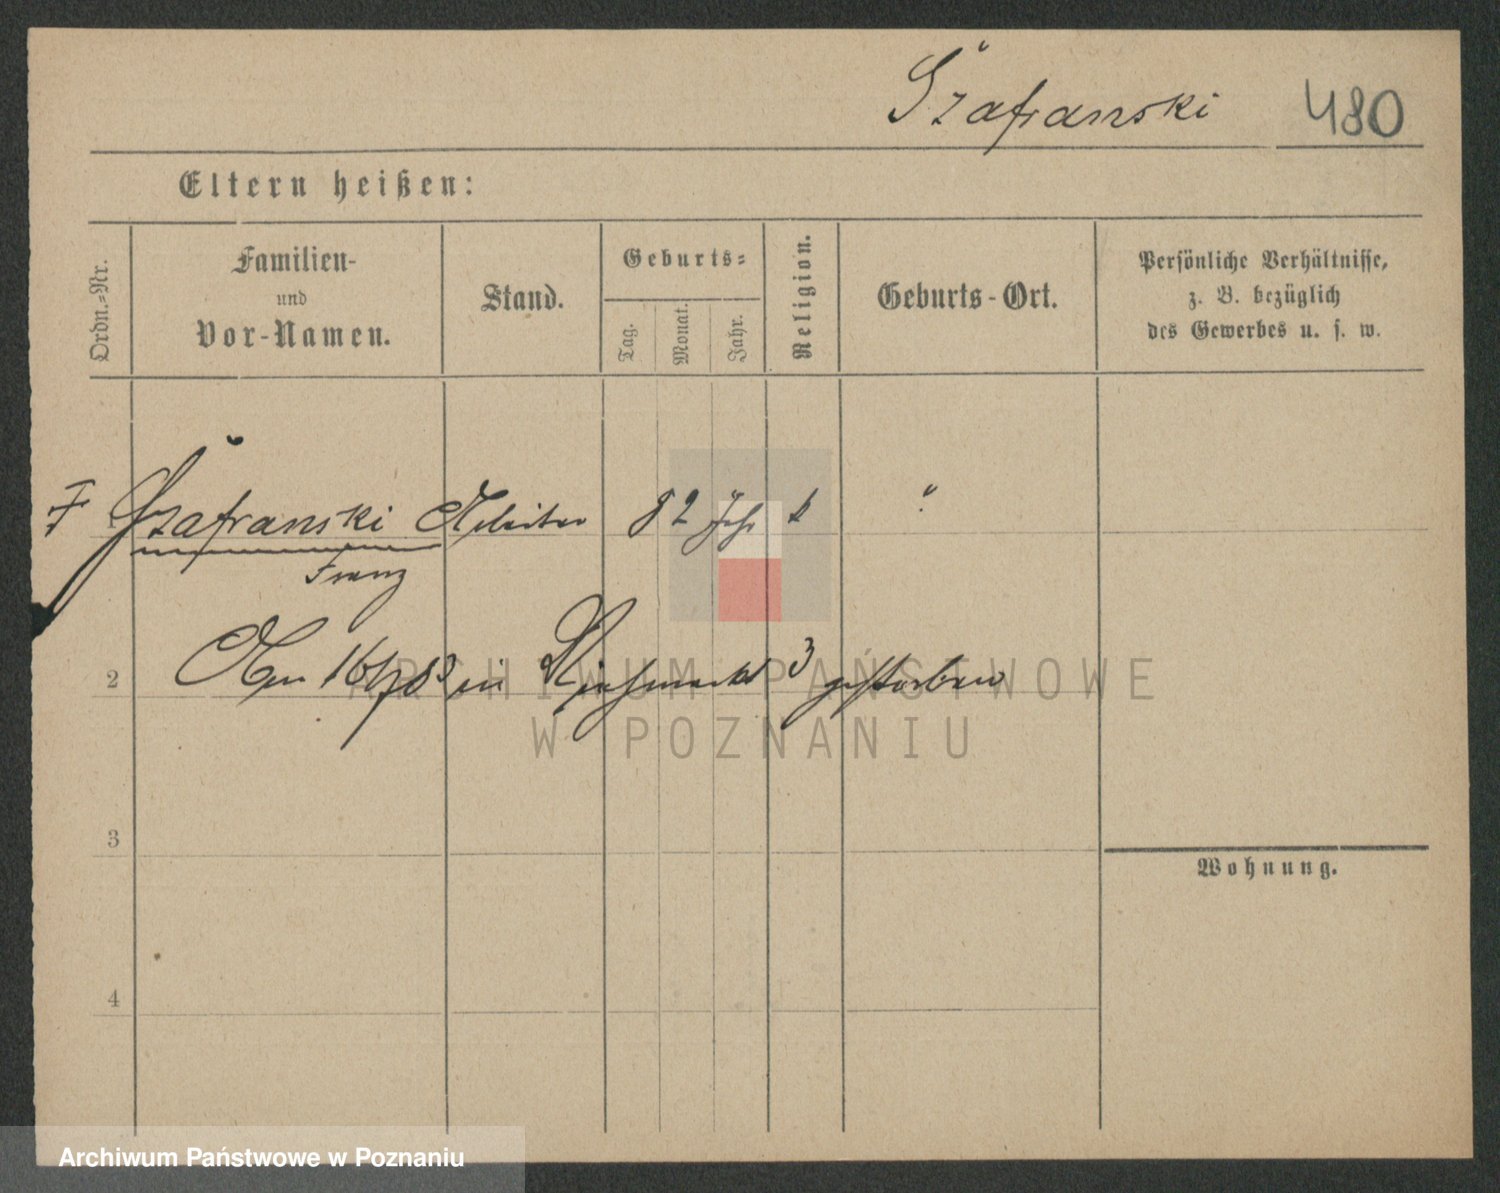 Szafranski 480
Eltern heißen:
Ordn.=Nr.
Familien-
und
Vor-Namen.
Stand.
Geburts=
Tag.
Monat.
Jahr.
Religion.
Geburts-Ort.
Persönliche Verhältnisse,
z. B. bezüglich
des Gewerbes u. s. w.
Szafranski Arbeiter 82 Jahr k
Franz
2 Am in 3 gestorben
3
Wohnung.
4
ARCHIWUM PAŃSTWOWE
W POZNANIU
Archiwum Państwowe w Poznaniu